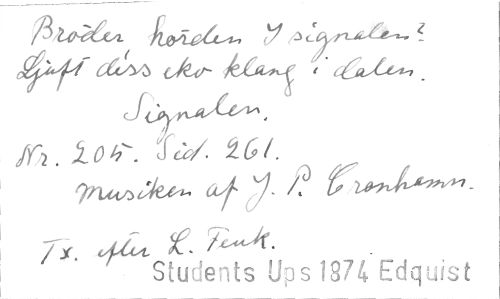 Bröder hörden I signalen?
Ljuft dess eko klang i dalen.
Signalen.
Nr. 205. Sid. 261.
Musiken af J. P. Cronhamn.
Tx. efter L. Fenk.
Students Ups 1874 Edquist